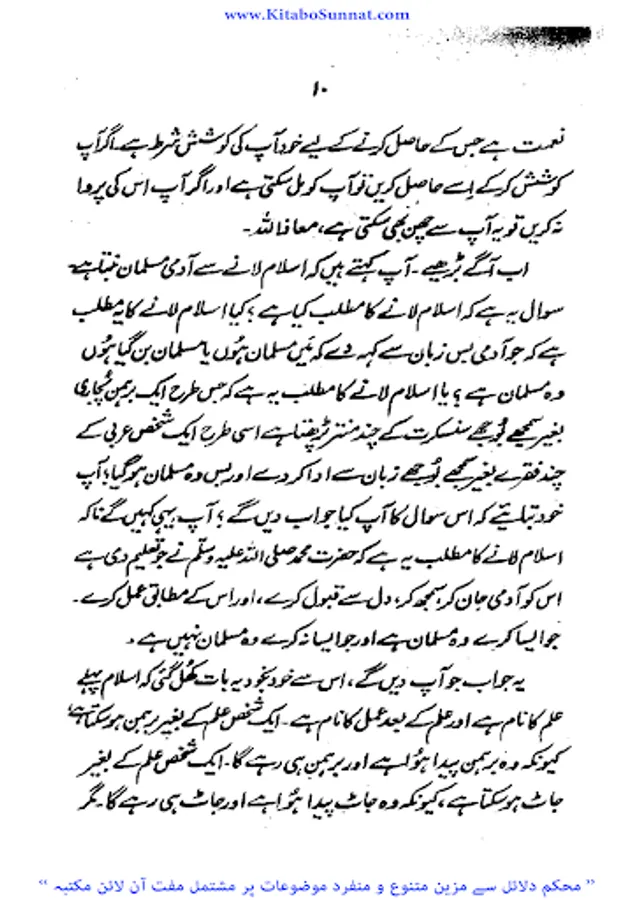 www.KitaboSunnat.com
۱۰
نعمت ہے جس کے حاصل کرنے کے لیے خود آپ کی کوشش شرط ہے۔ اگر آپ
کوشش کرکے اسے حاصل کریں تو آپ کو مل سکتی ہے اور اگر آپ اس کی پروا
نہ کریں تو یہ آپ سے چھن بھی سکتی ہے، معاذ اللہ۔
اب آگے بڑھیے۔ آپ کہتے ہیں کہ اسلام لانے سے آدمی مسلمان بنتا ہے۔
سوال یہ ہے کہ اسلام لانے کا مطلب کیا ہے؟ کیا اسلام لانے کا یہ مطلب
ہے کہ جو آدمی بس زبان سے کہہ دے کہ میں مسلمان ہوں یا مسلمان بن گیا ہوں
وہ مسلمان ہے؟ یا اسلام لانے کا مطلب یہ ہے کہ جس طرح ایک برہمن پُجاری
بغیر سمجھے بُوجھے سنسکرت کے چند منتر پڑھتا ہے اسی طرح ایک شخص عربی کے
چند فقرے بغیر سمجھے بُوجھے زبان سے ادا کردے اور بس وہ مسلمان ہوگیا؟ آپ
خود بتایئے کہ اس سوال کا آپ کیا جواب دیں گے؟ آپ یہی کہیں گے نا کہ
اسلام لانے کا مطلب یہ ہے کہ حضرت محمد صلی اللہ علیہ وسلم نے جو تعلیم دی ہے
اس کو آدمی جان کر، سمجھ کر، دل سے قبول کرے، اور اس کے مطابق عمل کرے۔
جو ایسا کرے وہ مسلمان ہے اور جو ایسا نہ کرے وہ مسلمان نہیں ہے۔
یہ جواب جو آپ دیں گے، اس سے خود بخود یہ بات کھل گئی کہ اسلام پہلے
علم کا نام ہے اور علم کے بعد عمل کا نام ہے۔ ایک شخص علم کے بغیر برہمن ہوسکتا ہے،
کیونکہ وہ برہمن پیدا ہُوا ہے اور برہمن ہی رہے گا۔ ایک شخص علم کے بغیر
جاٹ ہوسکتا ہے، کیونکہ وہ جاٹ پیدا ہُوا ہے اور جاٹ ہی رہے گا۔ مگر
"محکم دلائل سے مزین متنوع و منفرد موضوعات پر مشتمل مفت آن لائن مکتبہ"